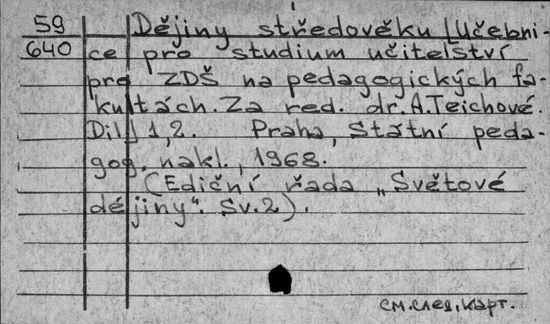 59 Dějiny středověku [Učebni-
640 ce pro studium učitelství
pro ZDŠ na pedagogických fa-
kultách. Za red. dr. A. Teichové.
Díl 1,2. Praha, Státní peda-
gog. nakl., 1968.
(Ediční řada „Světové
dějiny“. Sv. 2).
см. след. карт.